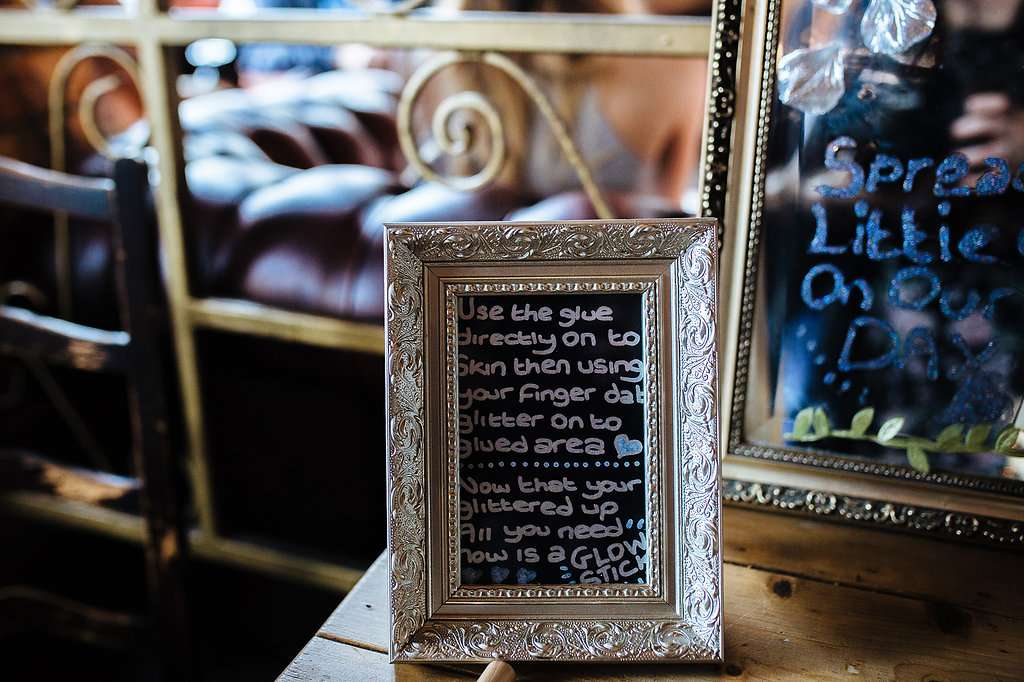 Use the glue
directly on to
Skin then using
your finger dab
glitter on to
glued area
Now that your
glittered up
All you need
now is a GLOW
STICK
Spread
Little
On Our
DAY